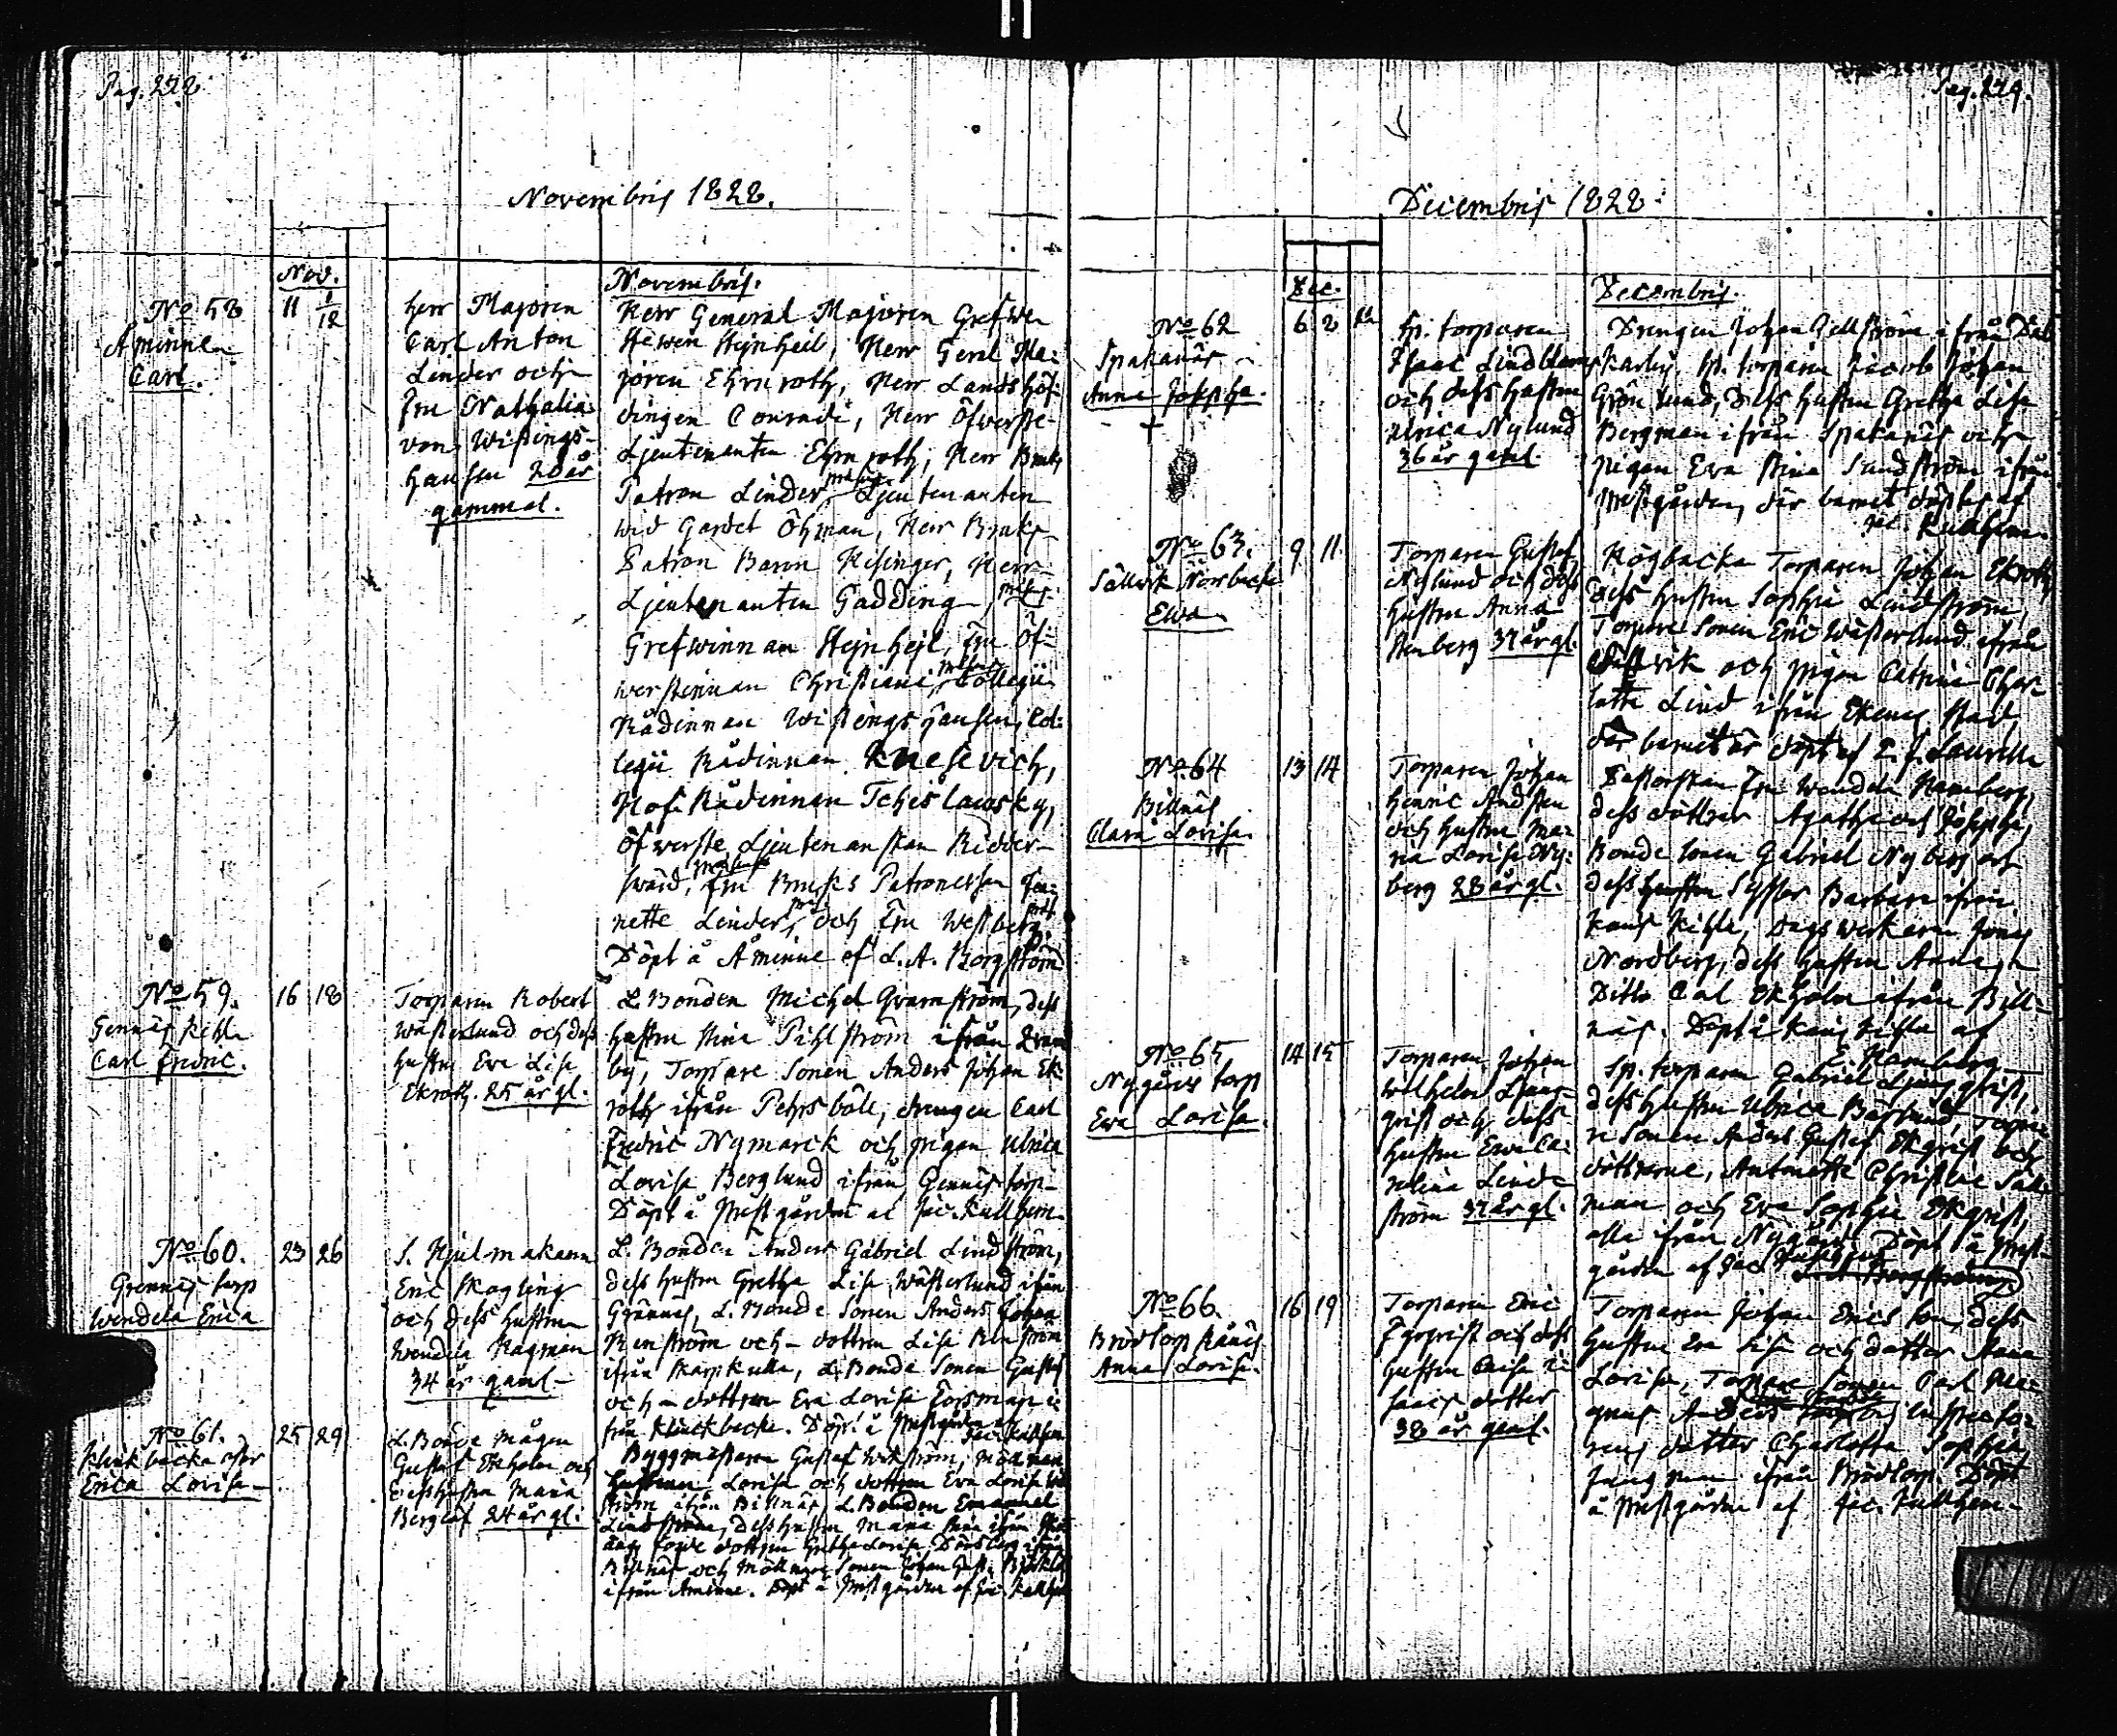 Pag. 228
Novembris 1828.
Nov.
Novembris.
No 58
Åminne
Carl.
11 1/12
Herr Majoren
Carl Anton
Linder och
Fru Nathalia
von Wissings-
hausen 20 år
gammal.
Herr General Majoren Grefwe
Stewen Steinheil, Herr Genl Ma-
joren Ehrnroth, Herr Landshöf-
dingen Conradi, Herr Öfwerste-
Ljeutenanten Ehrnroth, Herr Bruks
Patron Linder, Ljeutenanten
wid Gardet Öhman, Herr Bruks
Patron Baron Hisinger, Herr
Ljeutenanten Gadding,
Grefwinnan Steinheil, Fru Öf-
werstinnan Christiani, Collegii
Rådinnan Wissingshausen, Col-
legii Rådinnan Knesevich,
Hof Rådinnan Tchislawsky,
Öfwerste Ljeutenanskan Ridder-
swärd, Fru Bruks Patronessan Jea-
nette Linder, och Fru Westberg,
Döpt å Åminne af L. A. Borgström
No 59.
Gennäs
Carl Fredric.
16 18
Torparen Robert
Wästerlund och dess
hustru Eva Lisa
Ekroth. 25 år gl.
L. Bonden Michel Qvarnström, dess
hustru Stina Pihlström ifrån
by, Torpare Sonen Anders Johan Ek-
roth ifrån Pehrsböle, drengen Carl
Fredric Nymarck och pigan Ulrica
Lovisa Berglund ifrån Gennäs torp
Döpt å Prestgården af Jac. Kullhem.
No 60.
Grennäs torp
Wendela Erica
23 26
S. Hjulmakaren
Eric Skogling
och dess hustru
Wendela Hagman
34 år gaml
L. Bonden Anders Gabriel Lindström,
dess hustru Gretha Lisa Wästerlund ifrån
Grännäs, L. Bonde Sonen Anders Johan
Renström och dottren Lisa Renström
ifrån Karskulla, L. Bonde Sonen Gustaf
och dottren Eva Lovisa Forsman i-
från Klinckbacka. Döpt å Prestgården af
Jac. Kullhem
No 61.
Klinkbacka
Erica Lovisa
25 29
L. Bonde Mågen
Gustaf Ekholm och
dess hustru Maria
Berglöf 24 år gl.
Byggmästaren Gustaf Wikström,
Lovisa och dottren Eva Lovisa
ström ifrån Billnäs, L. Bonden Emanuel
Lindström, dess hustru Maria
dottren Gretha Lovisa
Billnäs och Sonen Johan
ifrån Åminne. Döpt å Prestgården af Jac. Kullhem
Pag. 229.
Decembris 1828.
Dec.
Decembris.
No 62
Spakanäs
Anna Josepha.
6 8
Sp. torparen
Isaac Lindblom
och dess hustru
Ulrica Nylund
36 år gaml.
Drengen Johan Zellström ifrån Dal
Karby, Sp. torparen Jacob Johan
Grönlund, dess hustru Gretha Lisa
Bergman ifrån Spakanäs och
pigan Eva Stina Sundström ifrån
Prestgården, där barnet döptes af
Jac. Kullhem
No 63.
Sällvik Norrbacka
Ewa
9 11
Torparen Gustaf
Nylund och dess
hustru Anna
Stenberg 37 år gl.
Högbacka Torparen Johan Ekroth
dess hustru Sophia Lindström,
Torpare Sonen Eric Wästerlund ifrån
och pigan Catrina Char-
lotta Lind ifrån Ekenäs Stad
där barnet är döpt af
No 64
Billnäs
Clara Lovisa
13 14
Torparen Johan
Henric Andsten
och hustru Ma-
ria Lovisa Ny-
berg 28 år gl.
Pastorskan Fru Wendela Hamberg,
dess döttrar Agatha och Josepha,
Bonde Sonen Gabriel Nyberg och
dess Syster Barbara ifrån
dagswerkaren Jonas
Nordberg, dess hustru Anna
Ditto Carl Ekholm ifrån Bill-
näs. Döpt å af
E. Hamberg
No 65
Nygårds torp
Eva Lovisa.
14 15
Torparen Johan
Wilhelm Ljung-
qvist och dess
hustru Eva Ca-
rolina Linde-
ström 37 år gl.
Sp. torparen Gabriel Ljungqvist,
dess hustru Ulrica Torpa-
re Sonen Anders Gustaf Ekqvist och
döttrarne, Antonetta Christina
man och Eva Sophia Ekqvist,
alla ifrån Nygård. Döpt å Prest-
gården af Jac. Kullhem
No 66.
Brödtorp
Anna Lovisa.
16 19
Torparen Eric
och dess
hustru Caisa I-
saacs dotter
38 år gaml.
Torparen Johan Ericsson, dess
hustru Eva Lisa och dotter Anna
Lovisa, Torpare Sonen Carl Mag-
nus Inspecto-
rens dotter Charlotta Sophia
ifrån Brödtorp. Döpt
å Prestgården af Jac. Kullhem